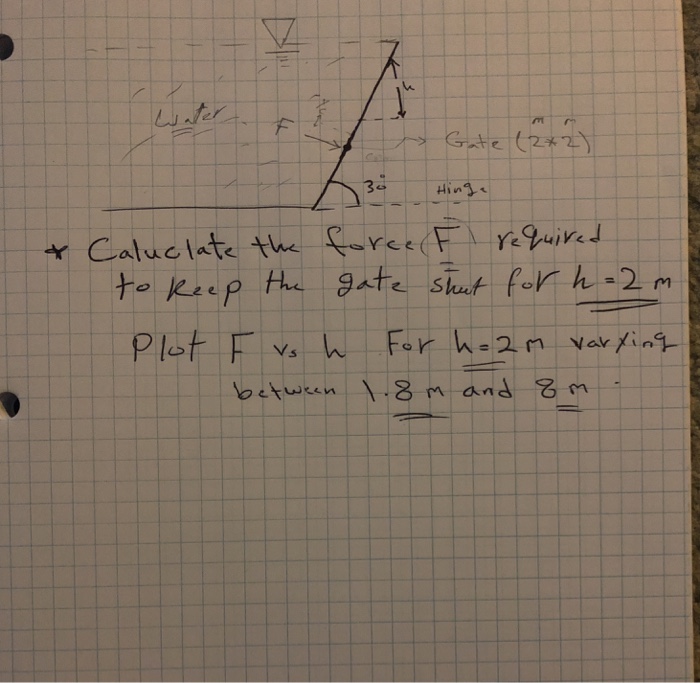 h
Water
F
Gate (2m*2m)
30°
Hinge
* Caluclate the force (F) required
to keep the gate shut for h=2 m
Plot F vs h For h=2m varying
between 1.8 m and 8 m.